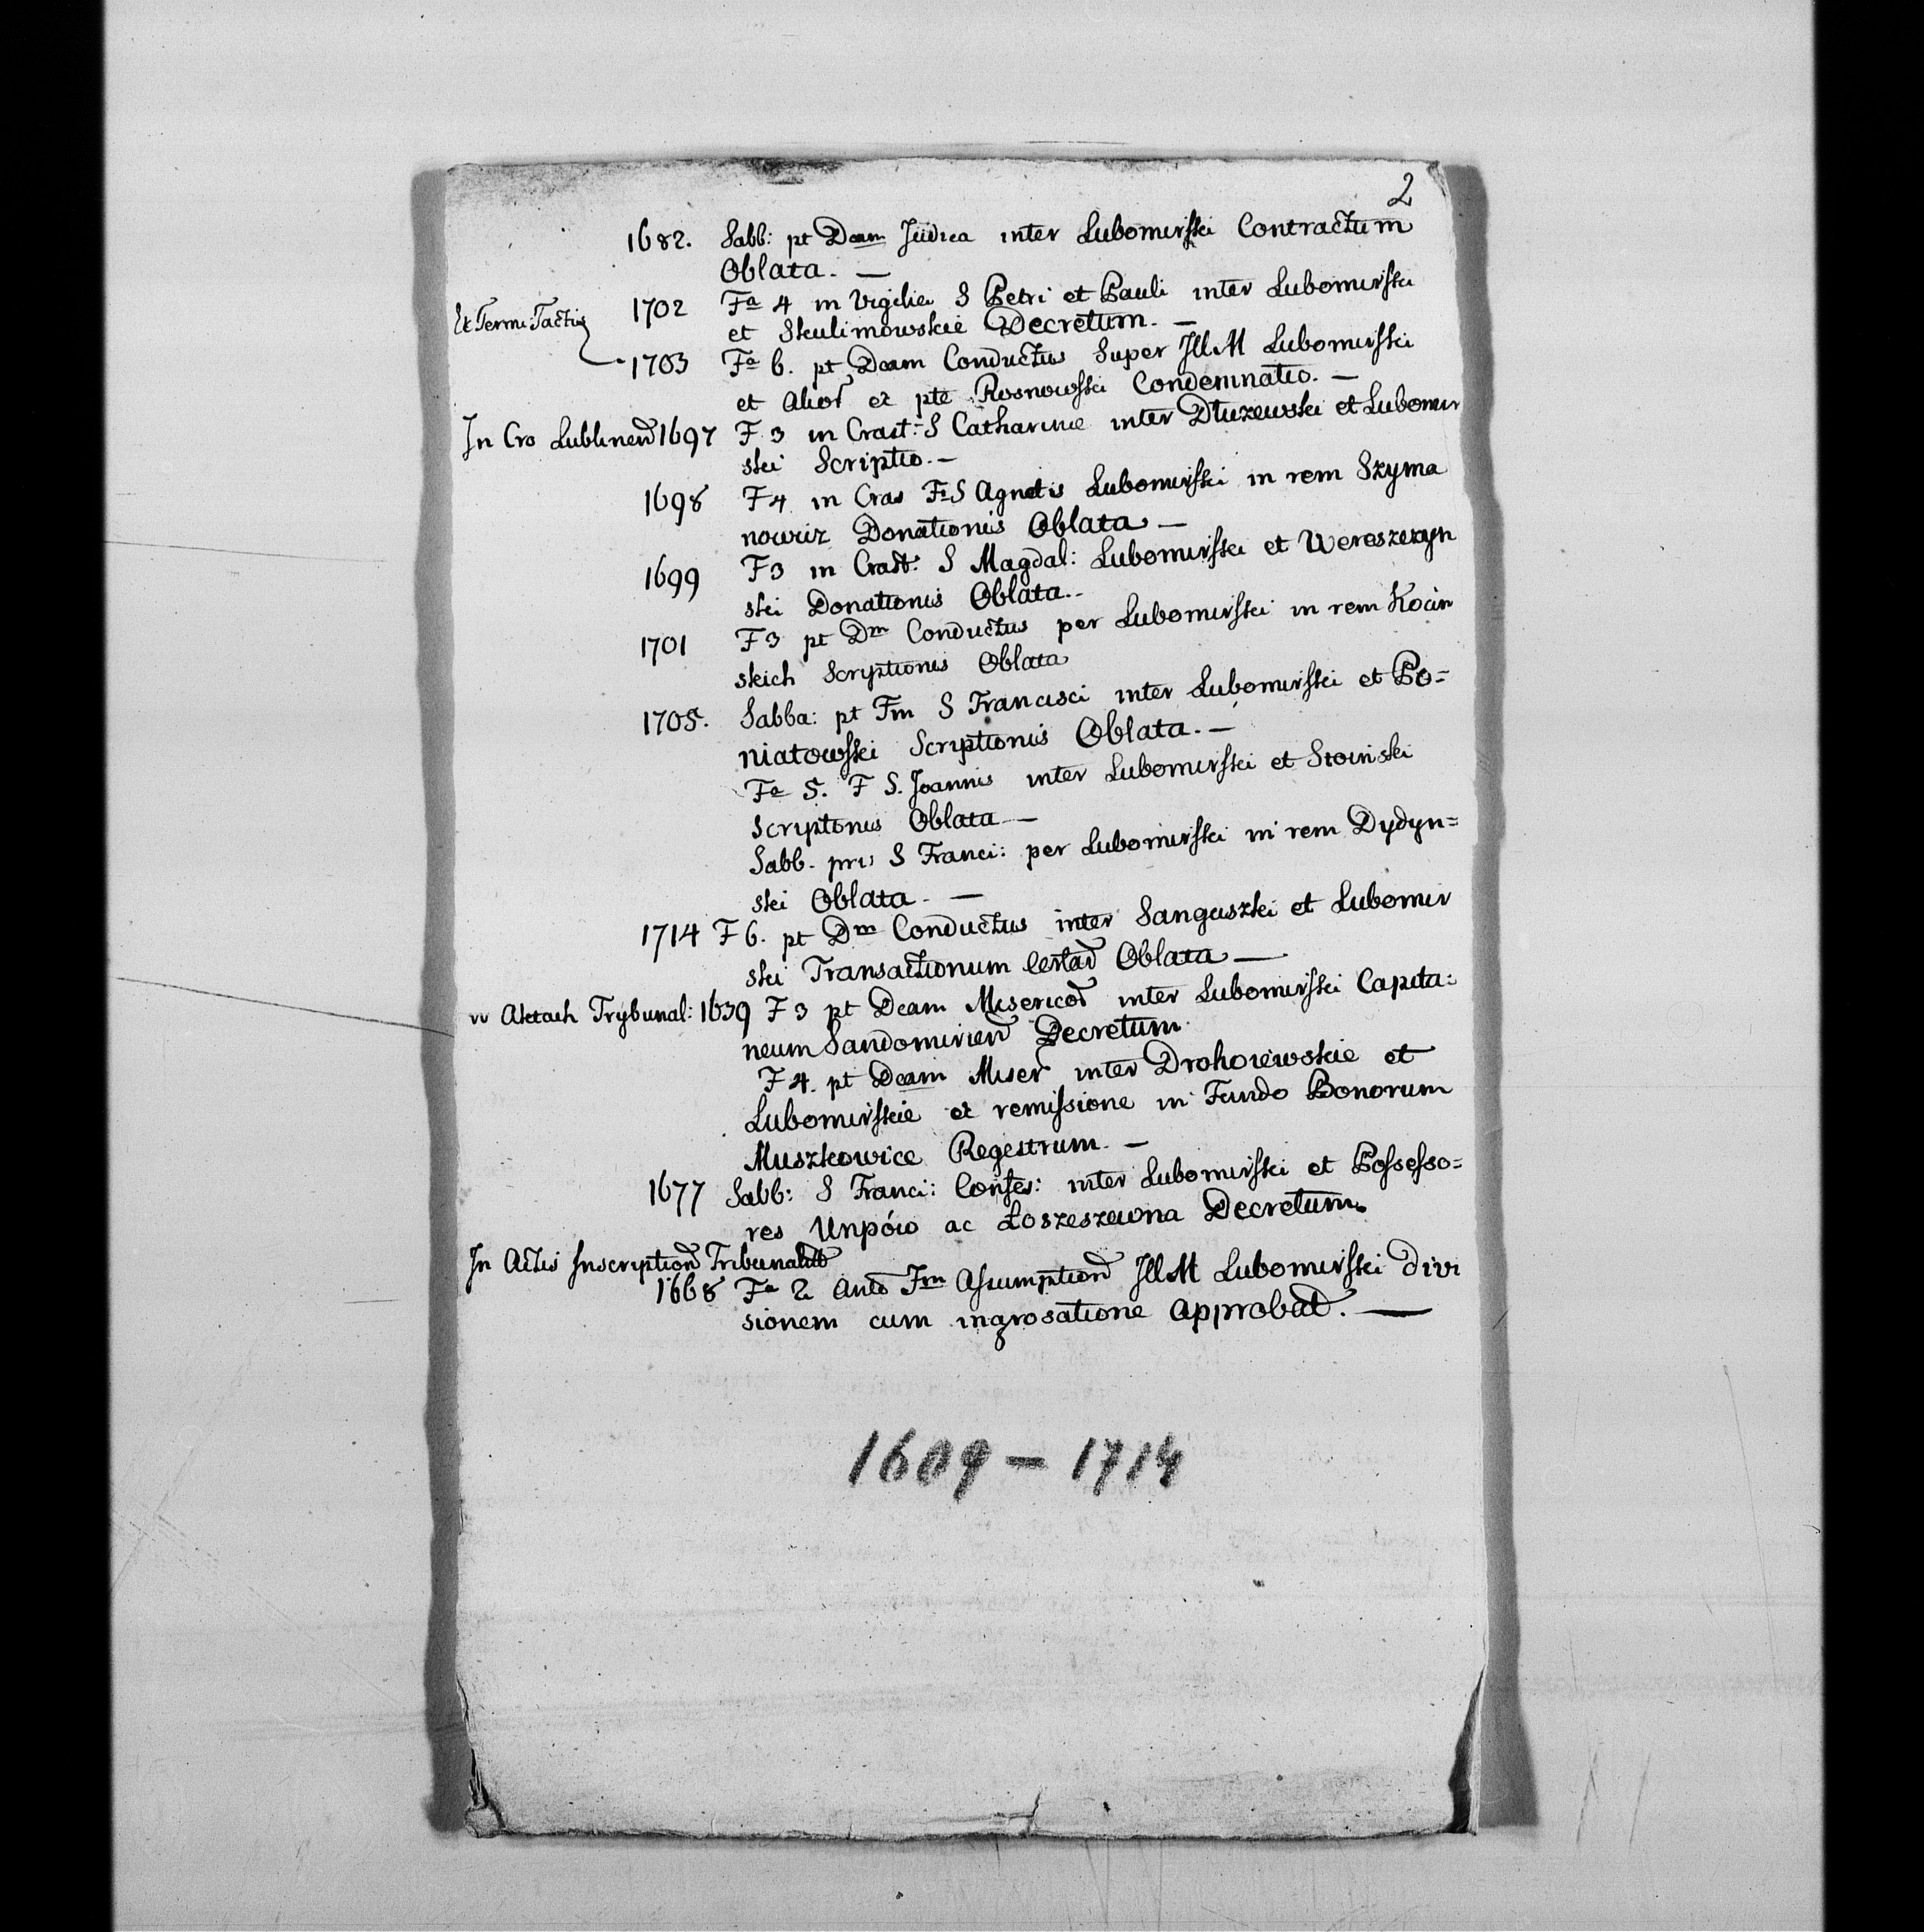 2
1682. Sabb: pt Dcam Judica inter Lubomirski Contractum
Oblata. —
Et Termi: Tactis 1702 Fa 4 in Vigilia S Petri et Pauli inter Lubomirski
et Skulimowskie Decretum. —
1703 Fa 6. pt Dcam Conductus Super Ill M Lubomirski
et Alior ex pte Rosnowski Condemnatio. —
In Cro Lublinen 1697 F 3 in Crast: S Catharinæ inter Dłuzewski et Lubomir
ski Scriptio. —
1698 F 4 in Cras F S Agnetis Lubomirski in rem Szyma
nowicz Donationis Oblata —
1699 F 3 in Crast: S Magdal: Lubomirski et Wereszczyn
ski Donationis Oblata. -
1701 F 3 pt Dm Conductus per Lubomirski in rem Kocin
skich Scryptionis Oblata
1705. Sabba: pt Fm S Francisci inter Lubomirski et Po=
niatowski Scriptionis Oblata. —
Fa 5. F S. Joannis inter Lubomirski et Stoinski
Scriptonis Oblata —
Sabb. pri: S Franci: per Lubomirski in rem Dydyn=
ski Oblata. —
1714 F 6. pt Dm Conductus inter Sanguszki et Lubomir
ski Transactionum Certar Oblata —
w Aktach Trybunal: 1639 F 3 pt Dcam Misericor inter Lubomirski Capita:
neum Sandomirien Decretum.
F 4. pt Dcam Miser inter Drohoiewskie et
Lubomirskie ex remissione in Fundo Bonorum
Muszkowice Regestrum. —
1677 Sabb: S Franci: Confes: inter Lubomirski et Possesso=
res Unpów ac Łoszeszewna Decretum.
In Actis Inscription Tribunal
1668 Fa 2 Ante Fm Assumption Ill M Lubomirski divi
sionem cum ingrosatione approbat. —
1609 – 1714